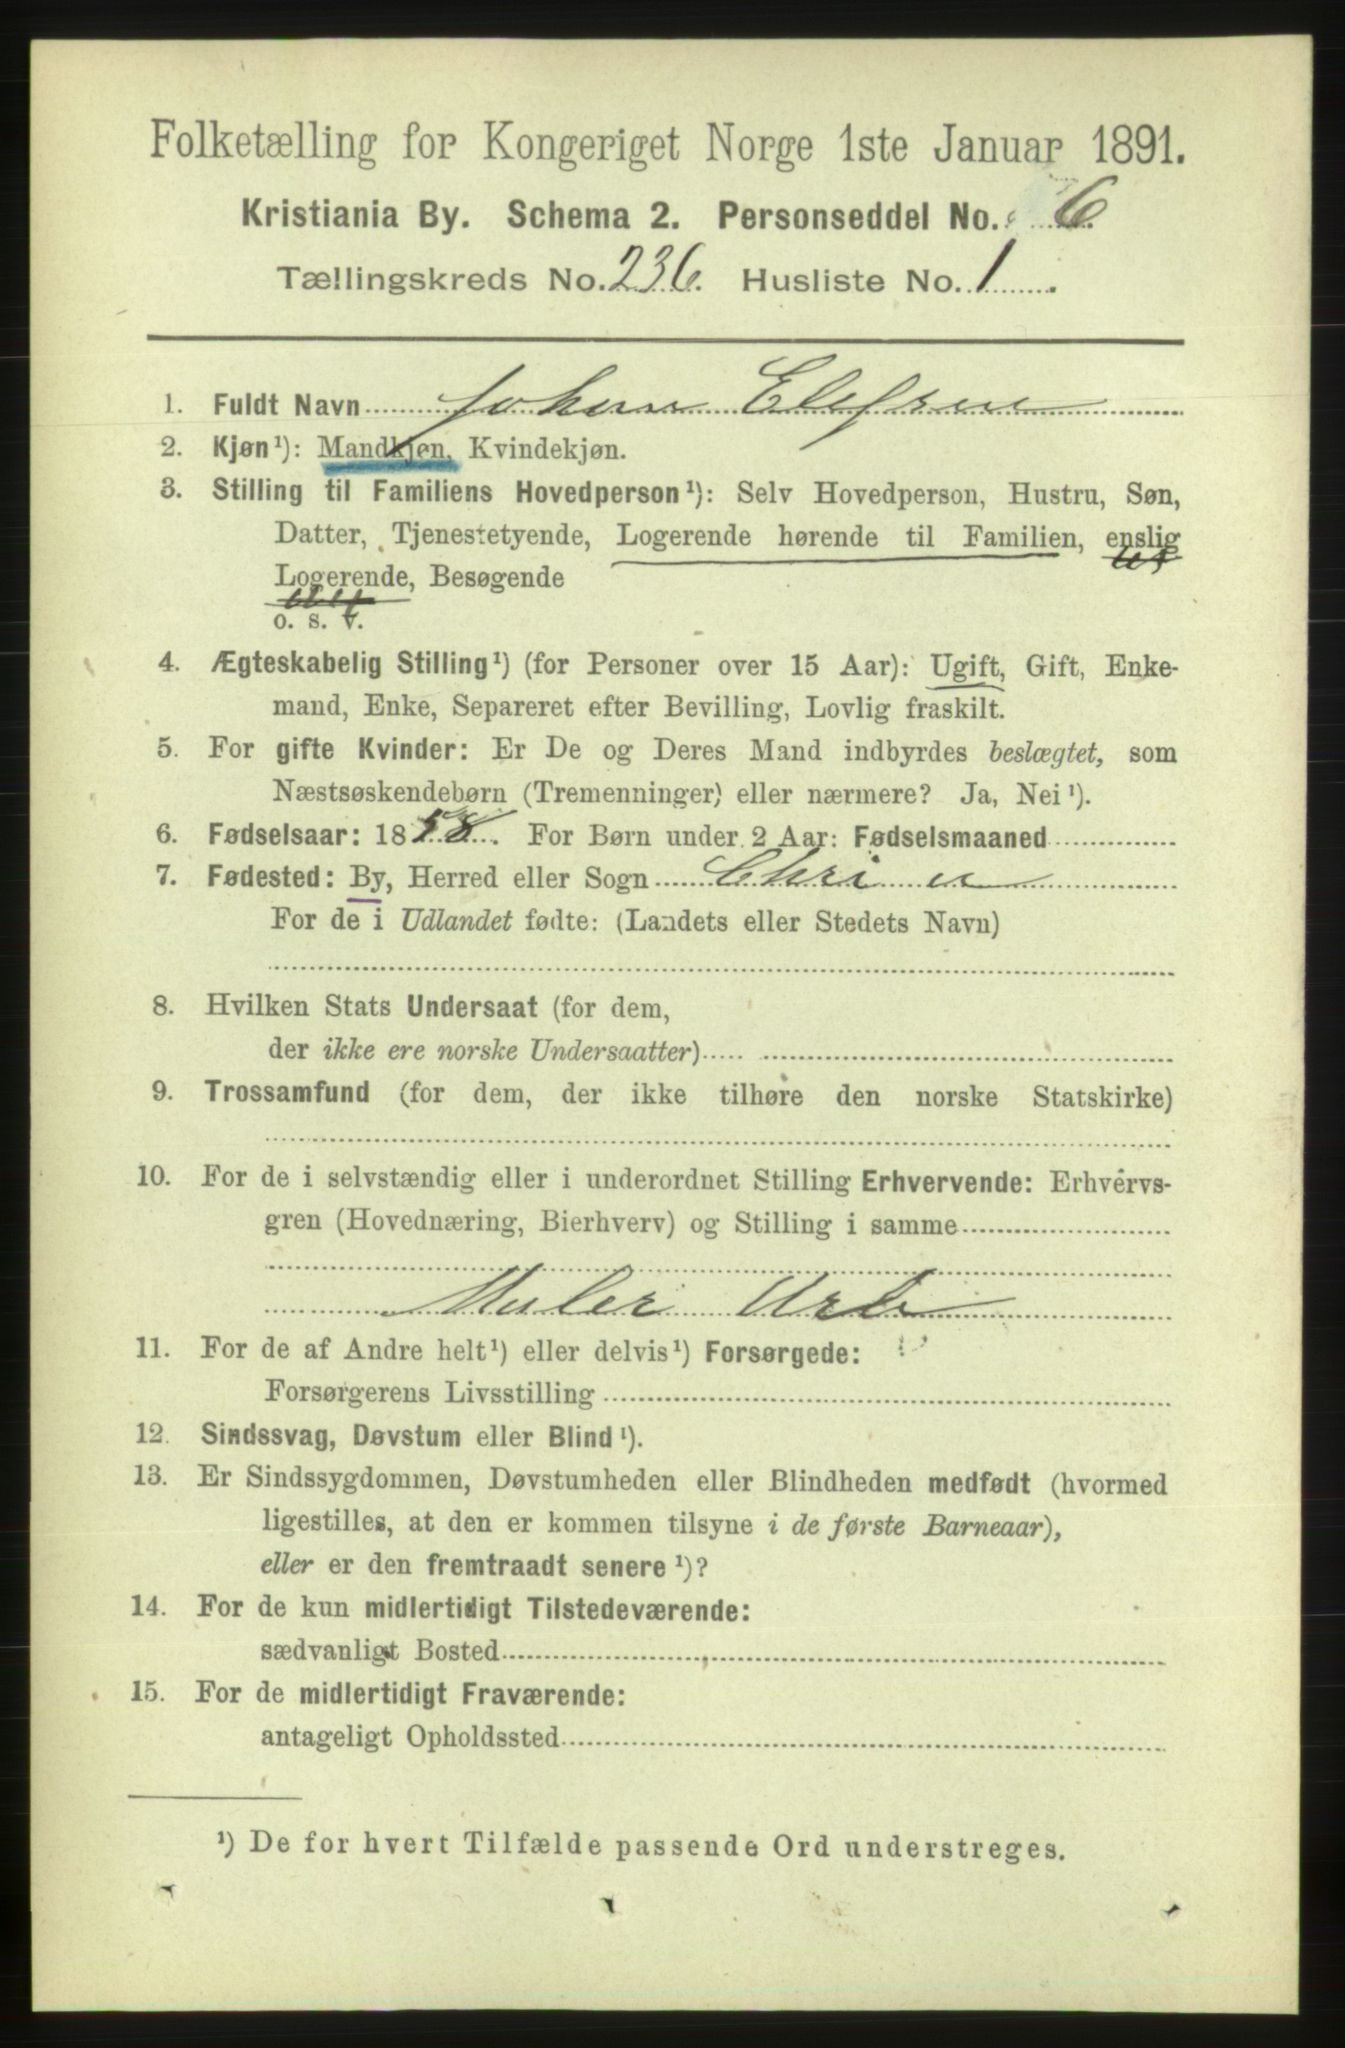 Folketælling for Kongeriget Norge 1ste Januar 1891.
Kristiania By. Schema 2. Personseddel No. 6
Tællingskreds No. 236. Husliste No. 1.
1. Fuldt Navn Johan
2. Kjøn¹): Mandkjøn, Kvindekjøn.
3. Stilling til Familiens Hovedperson¹): Selv Hovedperson, Hustru, Søn,
Datter, Tjenestetyende, Logerende hørende til Familien, enslig
Logerende, Besøgende
o. s. v.
4. Ægteskabelig Stilling¹) (for Personer over 15 Aar): Ugift, Gift, Enke-
mand, Enke, Separeret efter Bevilling, Lovlig fraskilt.
5. For gifte Kvinder: Er De og Deres Mand indbyrdes beslægtet, som
Næstsøskendebørn (Tremenninger) eller nærmere? Ja, Nei¹).
6. Fødselsaar: 1858. For Børn under 2 Aar: Fødselsmaaned
7. Fødested: By, Herred eller Sogn Chria
For de i Udlandet fødte: (Landets eller Stedets Navn)
8. Hvilken Stats Undersaat (for dem,
der ikke ere norske Undersaatter)
9. Trossamfund (for dem, der ikke tilhøre den norske Statskirke)
10. For de i selvstændig eller i underordnet Stilling Erhvervende: Erhvervs-
gren (Hovednæring, Bierhverv) og Stilling i samme
Maler Arb
11. For de af Andre helt¹) eller delvis¹) Forsørgede:
Forsørgerens Livsstilling
12. Sindssvag, Døvstum eller Blind¹).
13. Er Sindssygdommen, Døvstumheden eller Blindheden medfødt (hvormed
ligestilles, at den er kommen tilsyne i de første Barneaar),
eller er den fremtraadt senere¹)?
14. For de kun midlertidigt Tilstedeværende:
sædvanligt Bosted
15. For de midlertidigt Fraværende:
antageligt Opholdssted
¹) De for hvert Tilfælde passende Ord understreges.